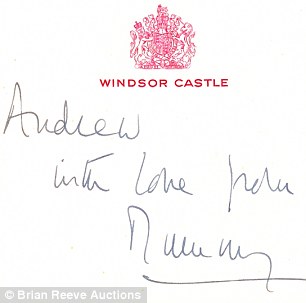 WINDSOR CASTLE
Andrew
with love from
Mummy
© Brian Reeve Auctions